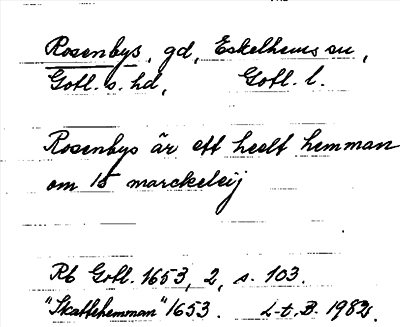 Rosenbys, gd, Eskelhems sn,
Gotl. s. hd, Gotl. l.
Rosenbys är ett heelt hemman
om 15 marckeleij
Rb Gotl. 1653, 2, s. 103.
"Skattehemman" 1653. L-t. B. 1982.